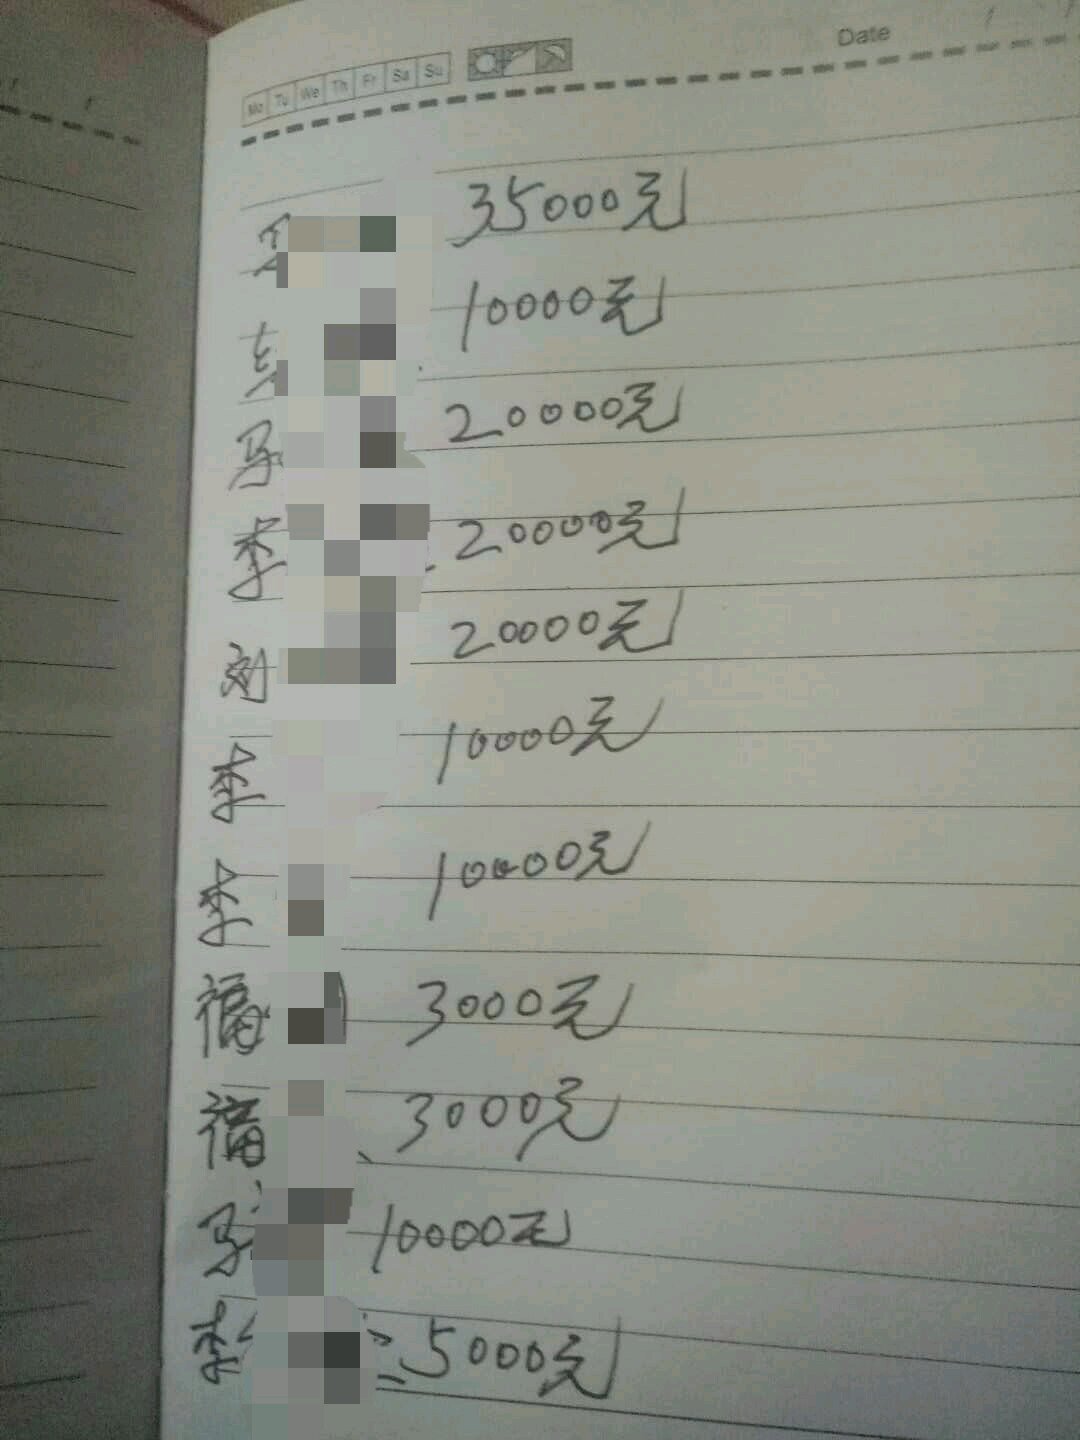 Mo Tu We Th Fr Sa Su Date
35000元
10000元
马 20000元
李 20000元
刘 20000元
李 10000元
李 10000元
福 3000元
福 3000元
马 10000元
5000元